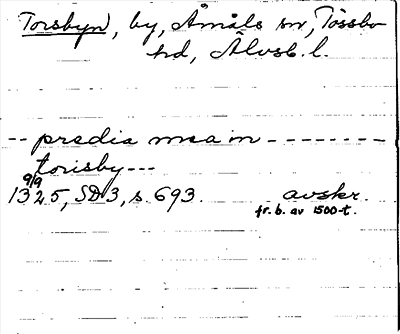 Torsbyn, by, Åmåls sn, Tössbo
hd, Älvsb. l.
-- predia mea in --------
torisby---
9/9
1325, SD 3, s. 693. avskr.
fr. b. av 1500-t.